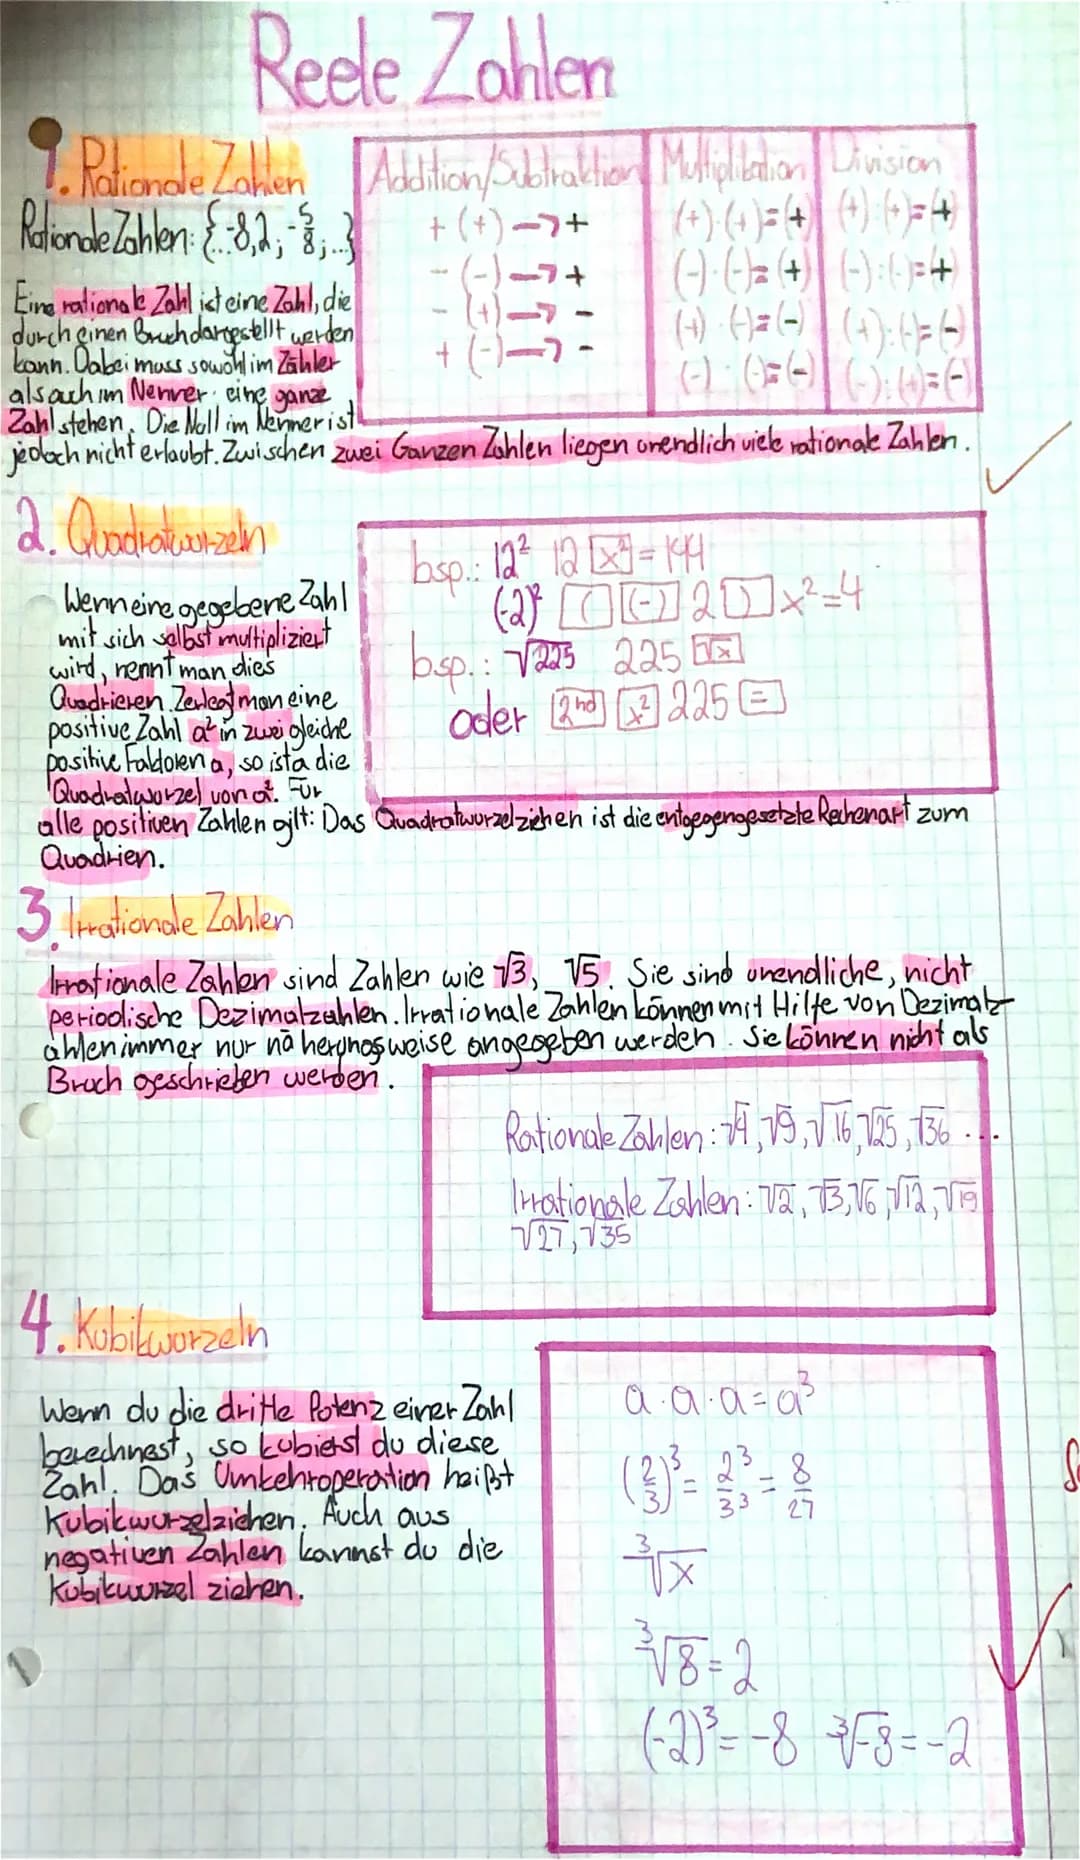 Reele Zahlen
1. Rationale Zahlen
Rationale Zahlen: {..-8,2; -5/8;...}
Eine rationale Zahl ist eine Zahl, die
durch einen Bruch dargestellt werden
kann. Dabei muss sowohl im Zähler
als auch im Nenner eine ganze
Zahl stehen. Die Null im Nenner ist
jedoch nicht erlaubt. Zwischen zwei Ganzen Zahlen liegen unendlich viele rationale Zahlen.
Addition/Subtraktion
+ (+) → +
- (-) → +
- (+) → -
+ (-) → -
Multiplikation
(+)·(+)=(+)
(-)·(-)=(+)
(+)·(-)=(-)
(-)·(-)=(-)
Division
(+):(+)=+
(-):(-)=+
(+):(-)=(-)
(-):(+)=(-)
2. Quadratwurzeln
Wenn eine gegebene Zahl
mit sich selbst multipliziert
wird, nennt man dies
Quadrieren. Zerlegt man eine
positive Zahl a² in zwei gleiche
positive Faktoren a, so ist a die
Quadratwurzel von a². Für
alle positiven Zahlen gilt: Das Quadratwurzelziehen ist die entgegengesetzte Rechenart zum
Quadrien.
bsp.: 12² 12 [x²] = 144
(-2)² [(] [(-)] 2 [)] x² = 4
bsp.: √225 225 [√x]
oder [2nd] [x²] 225 [=]
3. Irrationale Zahlen
Irrationale Zahlen sind Zahlen wie √3, √5. Sie sind unendliche, nicht
periodische Dezimalzahlen. Irrationale Zahlen können mit Hilfe von Dezimalz-
ahlen immer nur näherungsweise angegeben werden. Sie können nicht als
Bruch geschrieben werden.
Rationale Zahlen: √4, √9, √16, √25, √36 ...
Irrationale Zahlen: √2, √3, √6, √12, √19
√27, √35
4. Kubikwurzeln
Wenn du die dritte Potenz einer Zahl
berechnest, so kubierst du diese
Zahl. Das Umkehroperation heißt
Kubikwurzelziehen. Auch aus
negativen Zahlen kannst du die
Kubikwurzel ziehen.
a·a·a=a³
(2/3)³ = 2³/3³ = 8/27
³√x
³√8 = 2
(-2)³ = -8 ³√-8 = -2